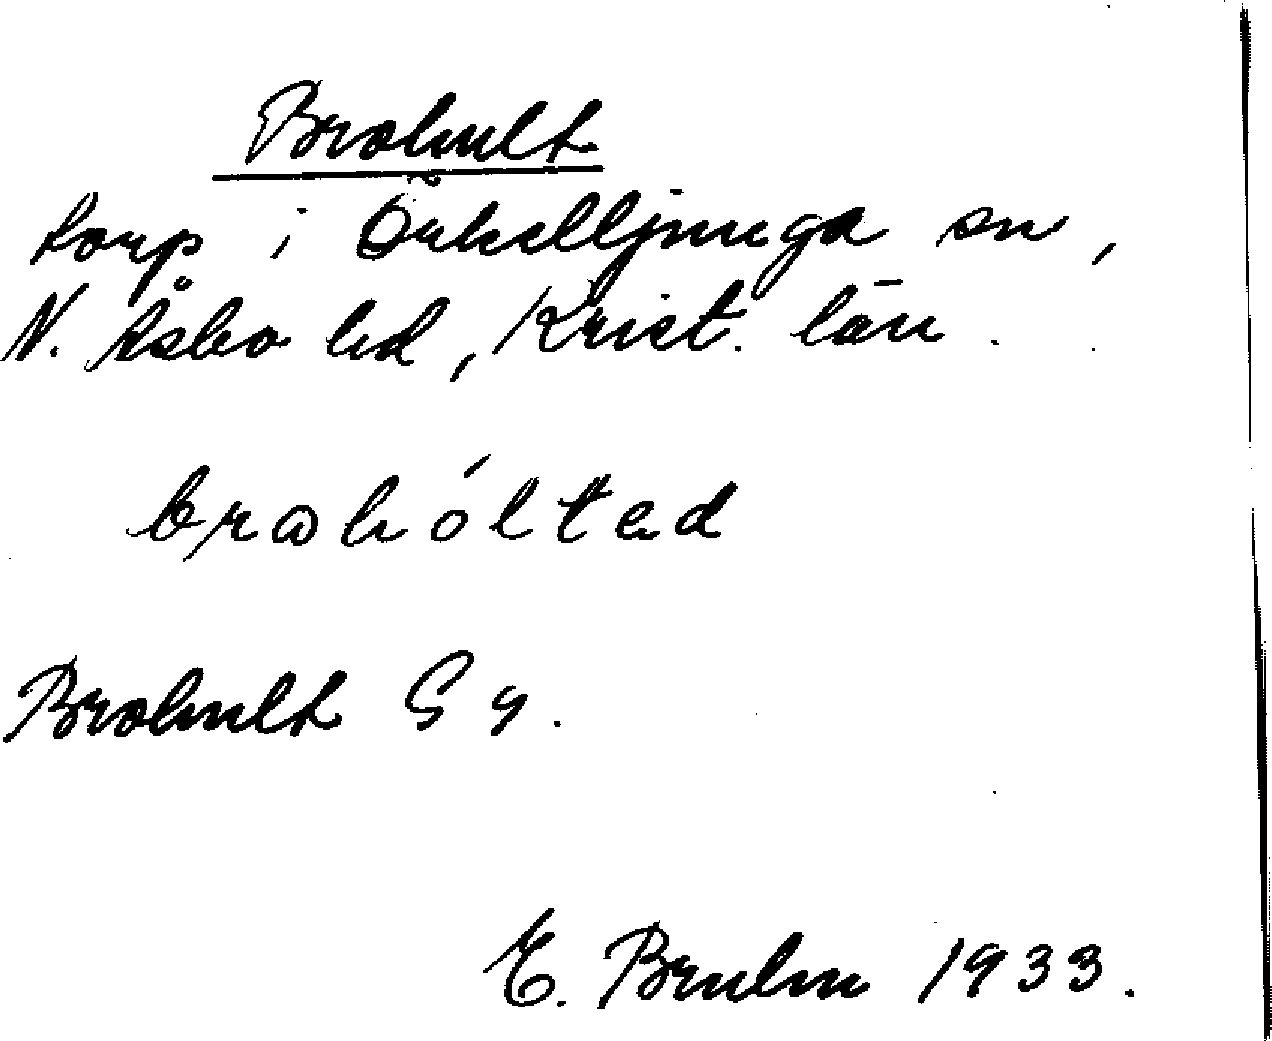 Brohult
torp i Örkelljunga sn,
N. Åsbo hd, Krist. län.
brohólted
Brohult Gg.
E. Bruhn 1933.